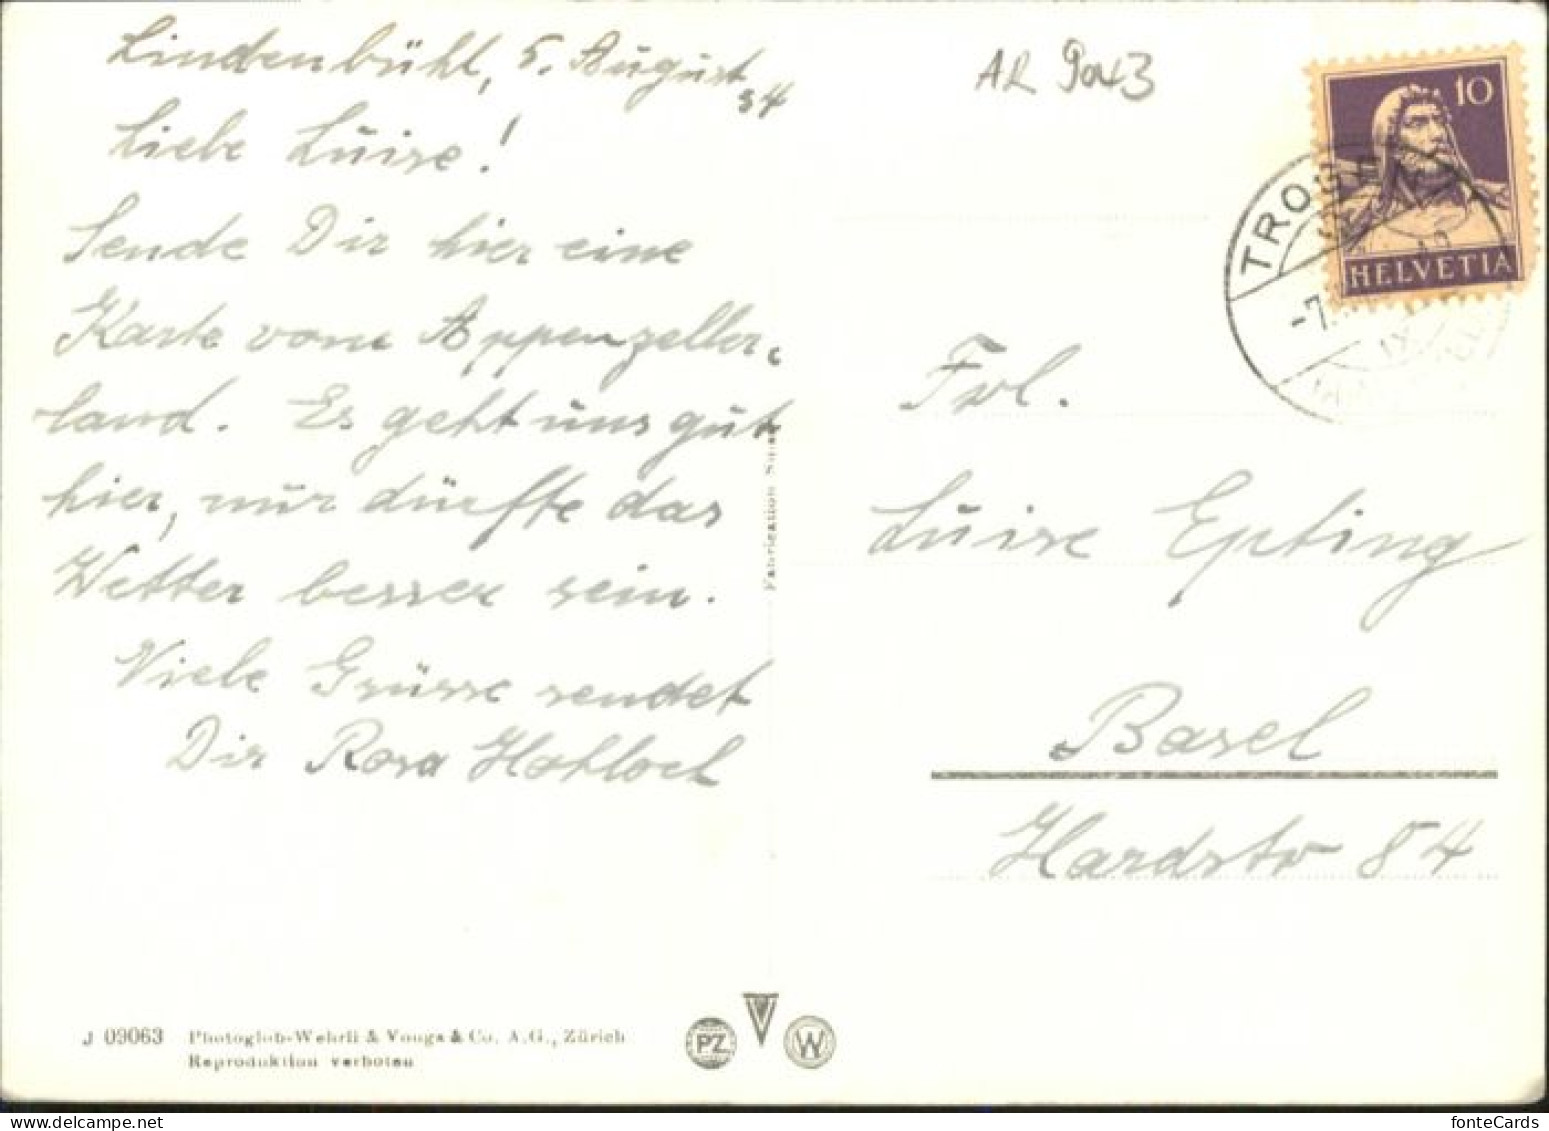 Lindenbühl, 5. August
34
Liebe Luise!
Sende Dir hier eine
Karte vom Appenzeller-
land. Es geht uns gut
hier, nur dürfte das
Wetter besser sein.
Viele Grüsse sendet
Dir Rosa Hohloch
AR 9043
10
HELVETIA
TROGEN
-7.
Frl.
Luise Epting
Basel
Hardstr 84
Fabrication
J 09063 Photoglob-Wehrli & Vouga & Co. A.G., Zürich
Reproduktion verboten
PZ
V
W
fonteCards